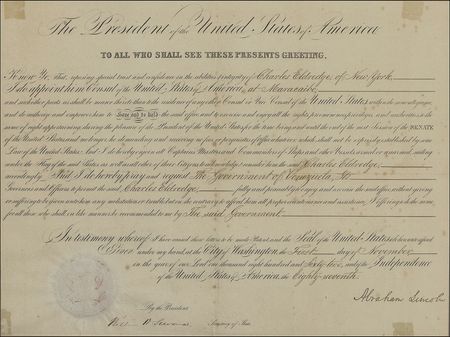 The President of the United States of America
TO ALL WHO SHALL SEE THESE PRESENTS GREETING.
Know Ye, That, reposing special trust and confidence in the abilities & integrity of Charles Eldredge, of New York,
I do appoint him Consul of the United States of America, at Maracaibo,
and such other parts as shall be nearer thereto than the residence of any other Consul or Vice Consul of the United States within the same allegiance,
and do authorize and empower him to have and to hold the said office, and to exercise and enjoy all the rights, preeminences, privileges, and authorities to the
same of right appertaining, during the pleasure of the President of the United States for the time being, and until the end of the next Session of the SENATE
of the United States and no longer; he demanding and receiving no fees or perquisites of office whatever, which shall not be expressly established by some
Law of the United States. And I do hereby enjoin all Captains, Masters and Commanders of Ships and other Vessels, armed or unarmed, sailing
under the Flag of the United States as well as all other of their Citizens, to acknowledge and consider him the said Charles Eldredge,
accordingly. And I do hereby pray and request The Government of Venezuela, Its
Governors and Officers to permit the said Charles Eldredge, fully and peaceably to enjoy and exercise the said office without giving
or suffering to be given unto him any molestation or trouble, but on the contrary to afford him all proper countenance and assistance; I offering to do the same
for all those who shall, in like manner, be recommended to me by The said Government.
In testimony whereof I have caused these letters to be made Patent and the Seal of the United States to be hereunto affixed
Given under my hand, at the City of Washington, the First day of November
in the year of our Lord one thousand eight hundred and sixty two, and of the Independence
of the United States of America, the Eighty-seventh.
Abraham Lincoln
By the President
Secretary of State